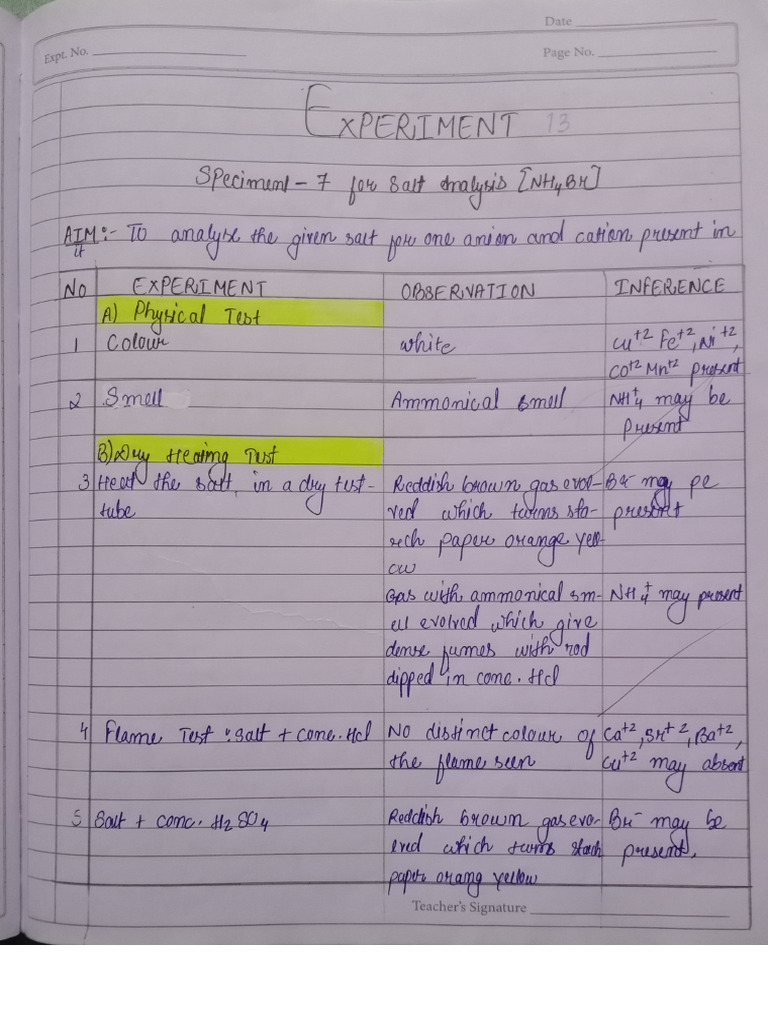 Date
Expt. No.
Page No.
EXPERIMENT 13
Speciment - 7 for Salt Analysis [NH4Br]
AIM:- To analyse the given salt for one anion and cation present in
it
No EXPERIMENT OBSERVATION INFERENCE
A) Physical Test
1 Colour white Cu+2 Fe+2, Ni+2,
Co+2 Mn+2 present
2 Smell Ammonical smell NH4+ may be
present
B) Dry Heating Test
3 Heat the salt in a dry test- Reddish brown gas evol- Br- may pe
tube ved which turns sta- present
rch paper orange yell-
ow
Gas with ammonical sm- NH4+ may present
ell evolved which give
dense fumes with rod
dipped in conc. Hcl
4 Flame Test : Salt + conc. Hcl No distinct colour of Ca+2, Sr+2, Ba+2,
the flame seen Cu+2 may absent
5 Salt + conc. H2SO4 Reddish brown gas evo- Br- may be
lved which turns starch present,
paper orang yellow
Teacher's Signature